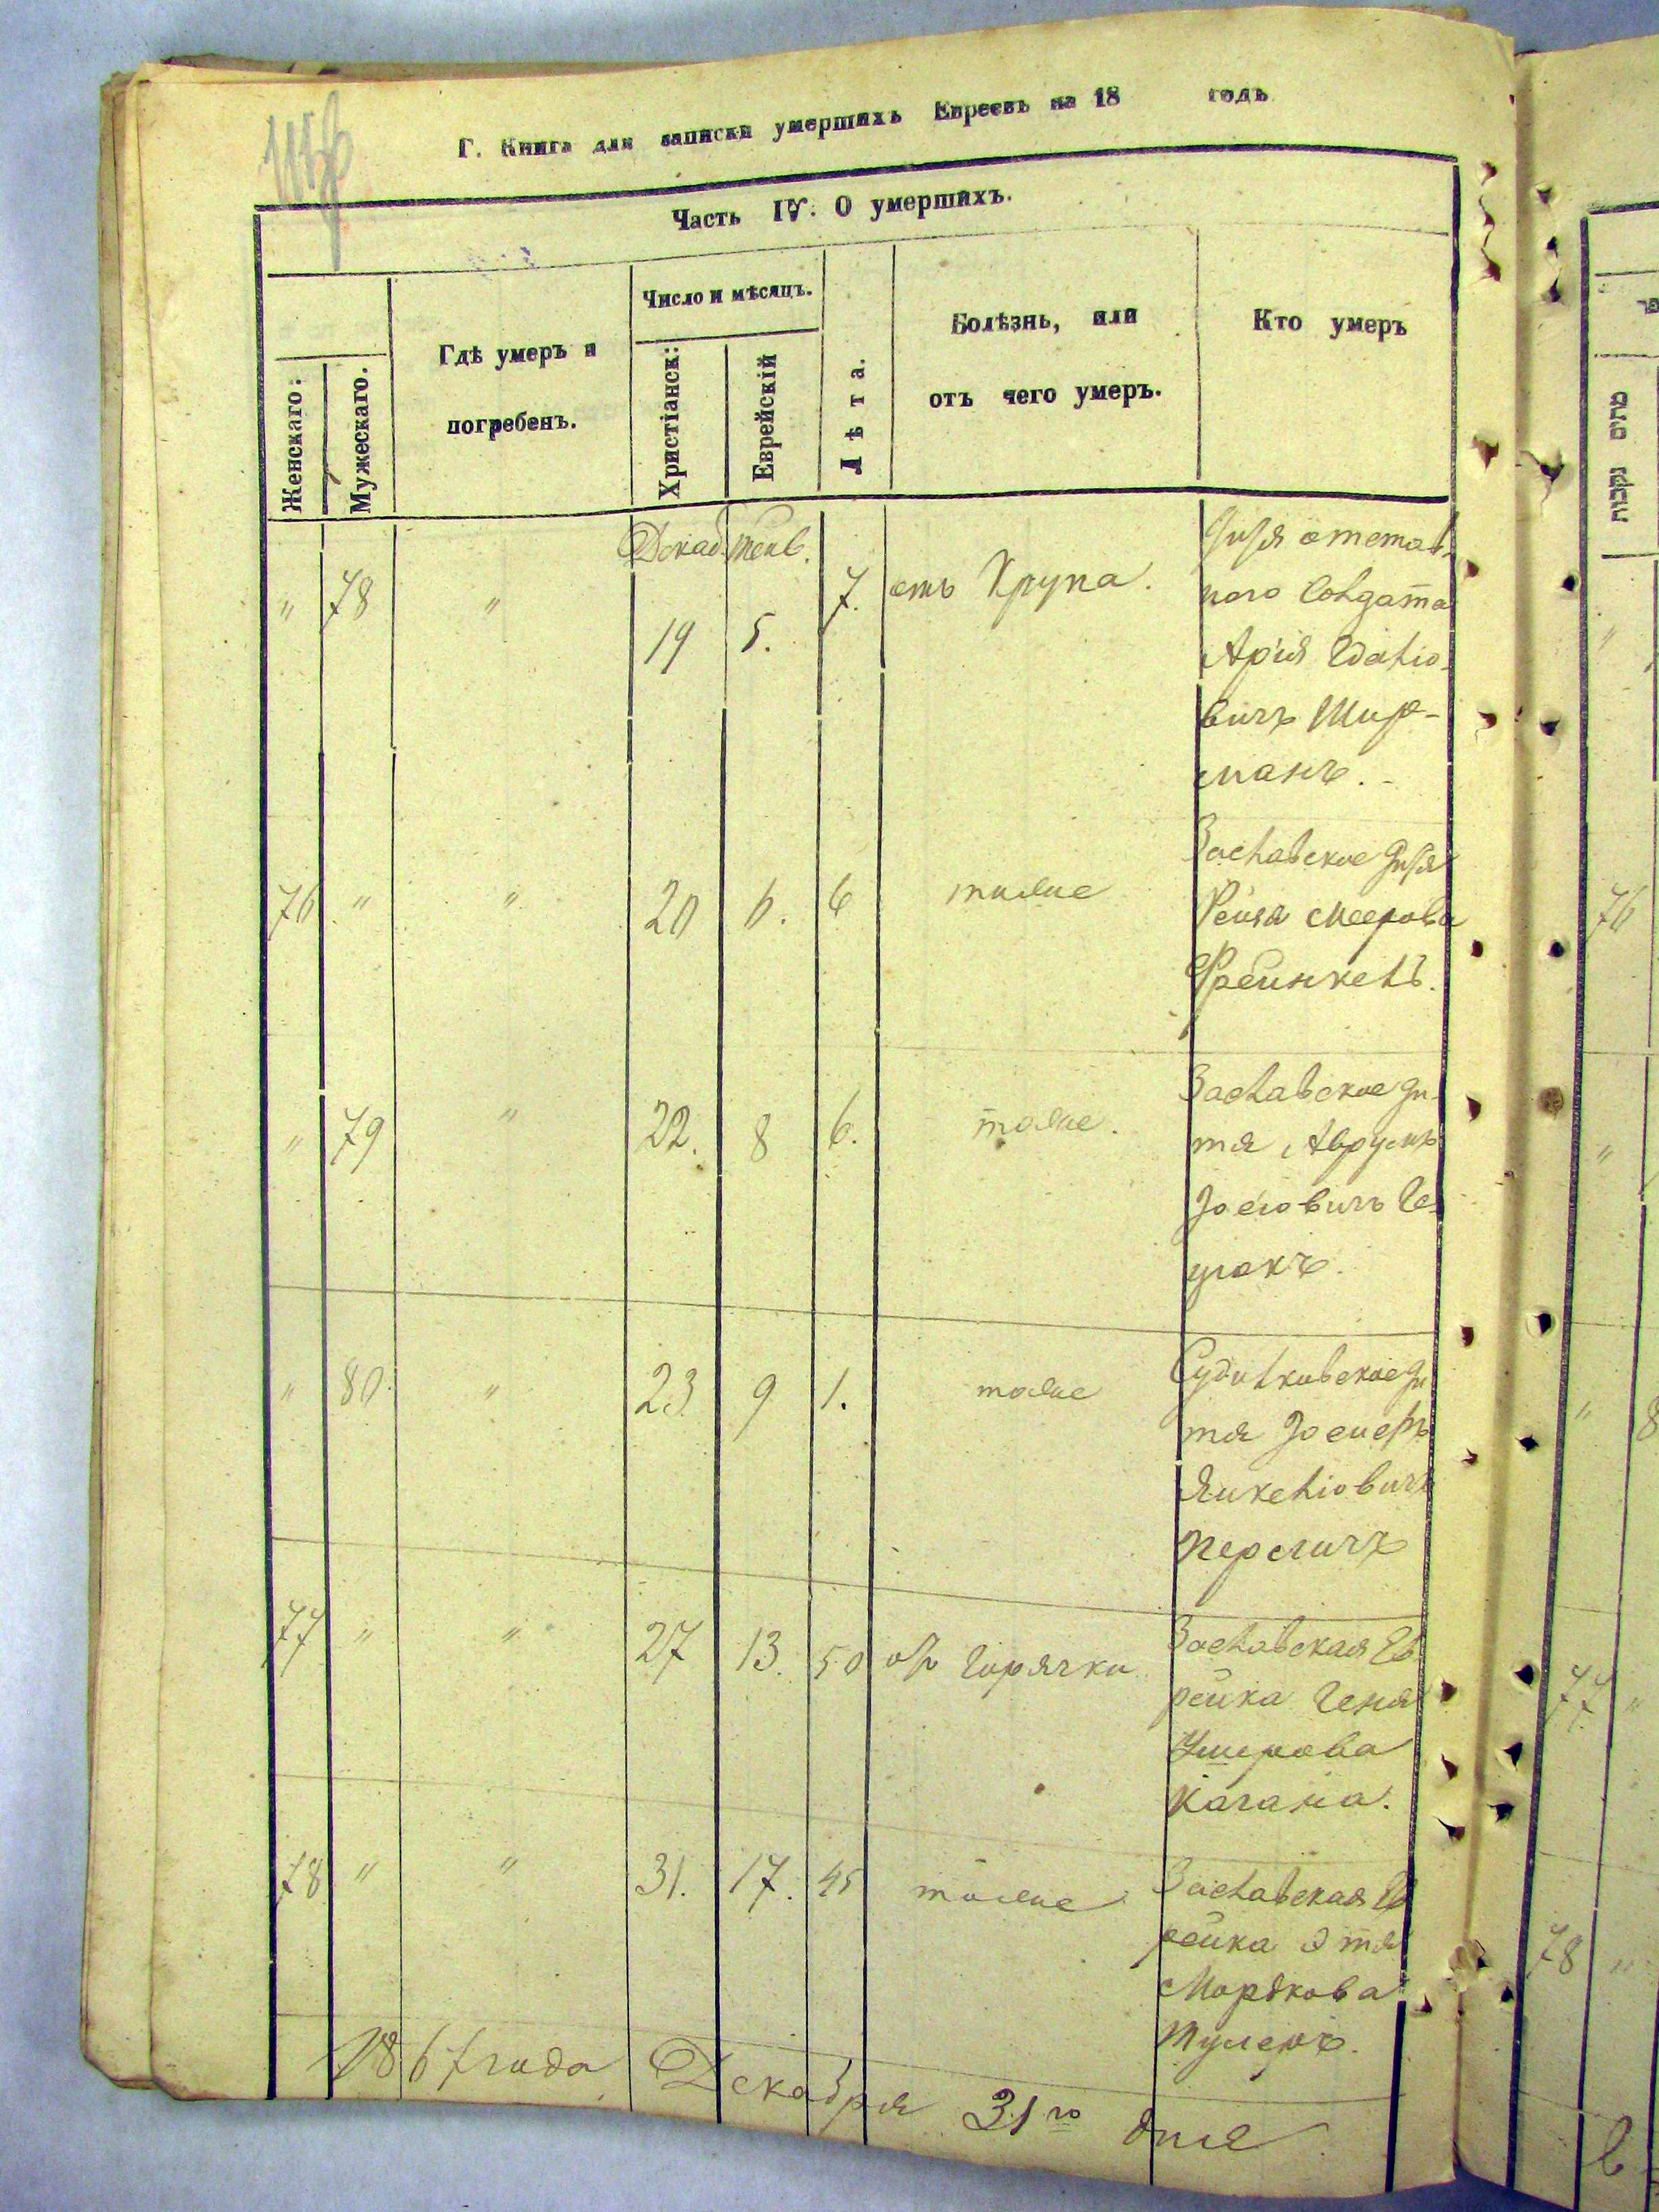 Г. Книга для записки умершихъ Евреевъ на 18 годъ
Часть IV. О умершихъ.
Женскаго:
Мужескаго.
Гдѣ умеръ и
погребенъ.
Число и мѣсяцъ.
Христіанск:
Еврейскій
Лѣта.
Болѣзнь, или
отъ чего умеръ.
Кто умеръ
" 78 " 19 5. 7. отъ Крупа.
Дитя отстав-
ного Солдата
вичъ
манъ.
76 " " 20 6. 6 тоже
Заславское Дитя
Рейзя Меерова
Френкель.
" 79 " 22. 8 6. тоже.
Заславское Ди-
тя Аврумъ
" 80 " 23 9 1. тоже
Судилковское Ди
тя Іосифъ
Янкеліовичъ
77 " " 27 13. 50 отъ Горячки
Заславская Ев
рейка Геня
Ушерова
Кагана.
78 " " 31. 17. 45 тоже
Заславская Ев
рейка Этя
Мордкова
1867 года Декабря 31го дня
מתים
נקבות
"
76
"
" 8
77 "
78 "